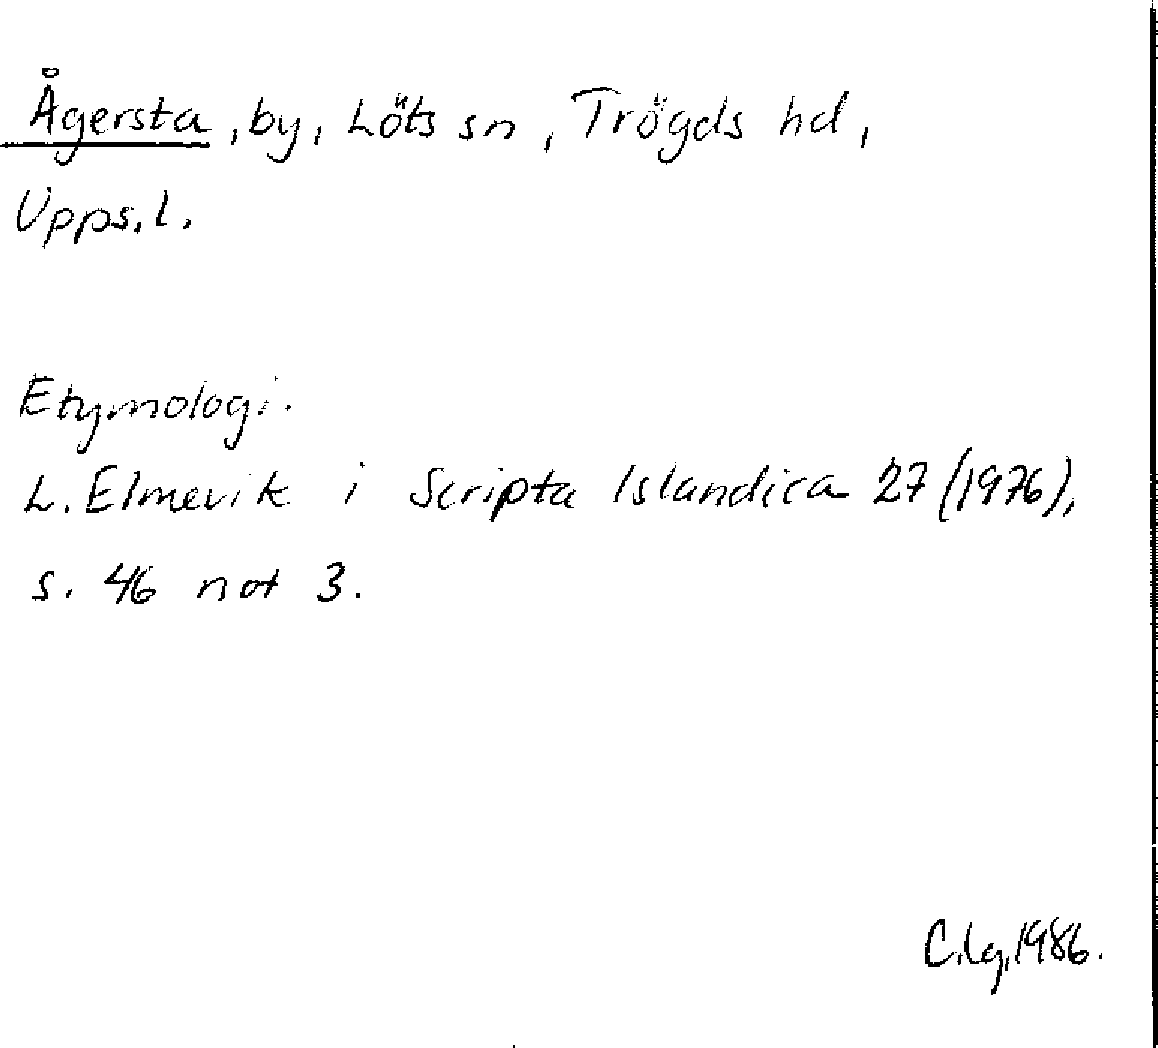 Ågersta, by, Löts sn, Trögds hd,
Upps. l.
Etymologi.
L. Elmevik i Scripta Islandica 27 (1976),
s. 46 not 3.
C.lg, 1986.